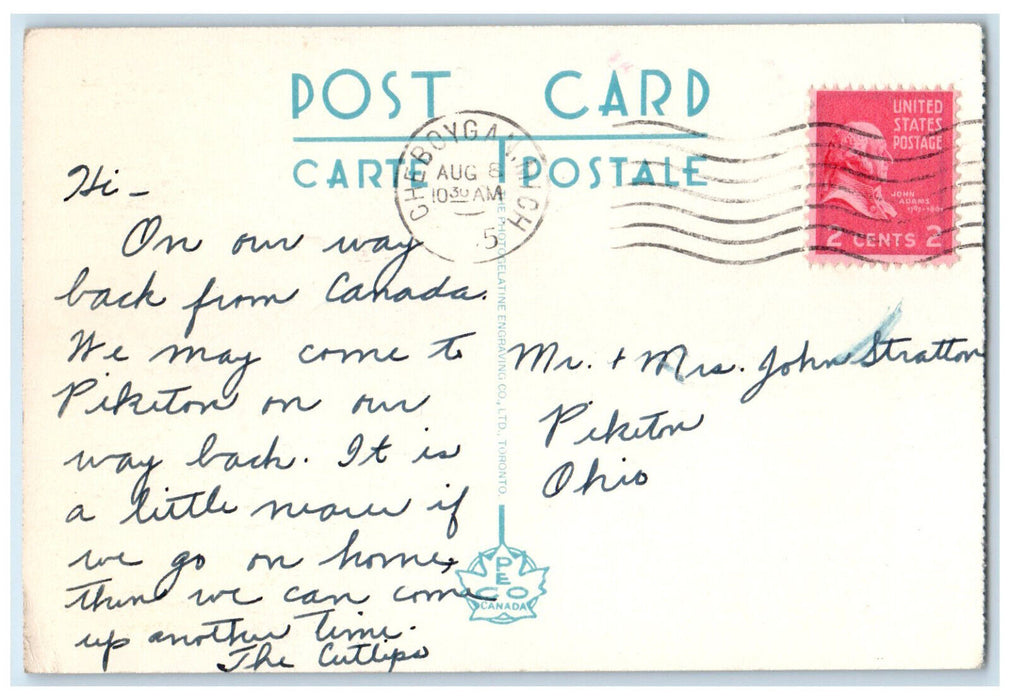 POST CARD
CARTE POSTALE
CHEBOYGAN, MICH
AUG 8
10 30 AM
5
UNITED
STATES
POSTAGE
JOHN
ADAMS
2 CENTS 2
Hi -
On our way
back from Canada.
We may come to
Piketon on our
way back. It is
a little nearer if
we go on home,
then we can come
up another time.
The Cutlips
THE PHOTOGELATINE ENGRAVING CO., LTD., TORONTO.
PECO
CANADA
Mr. + Mrs. John Stratton
Piketon
Ohio